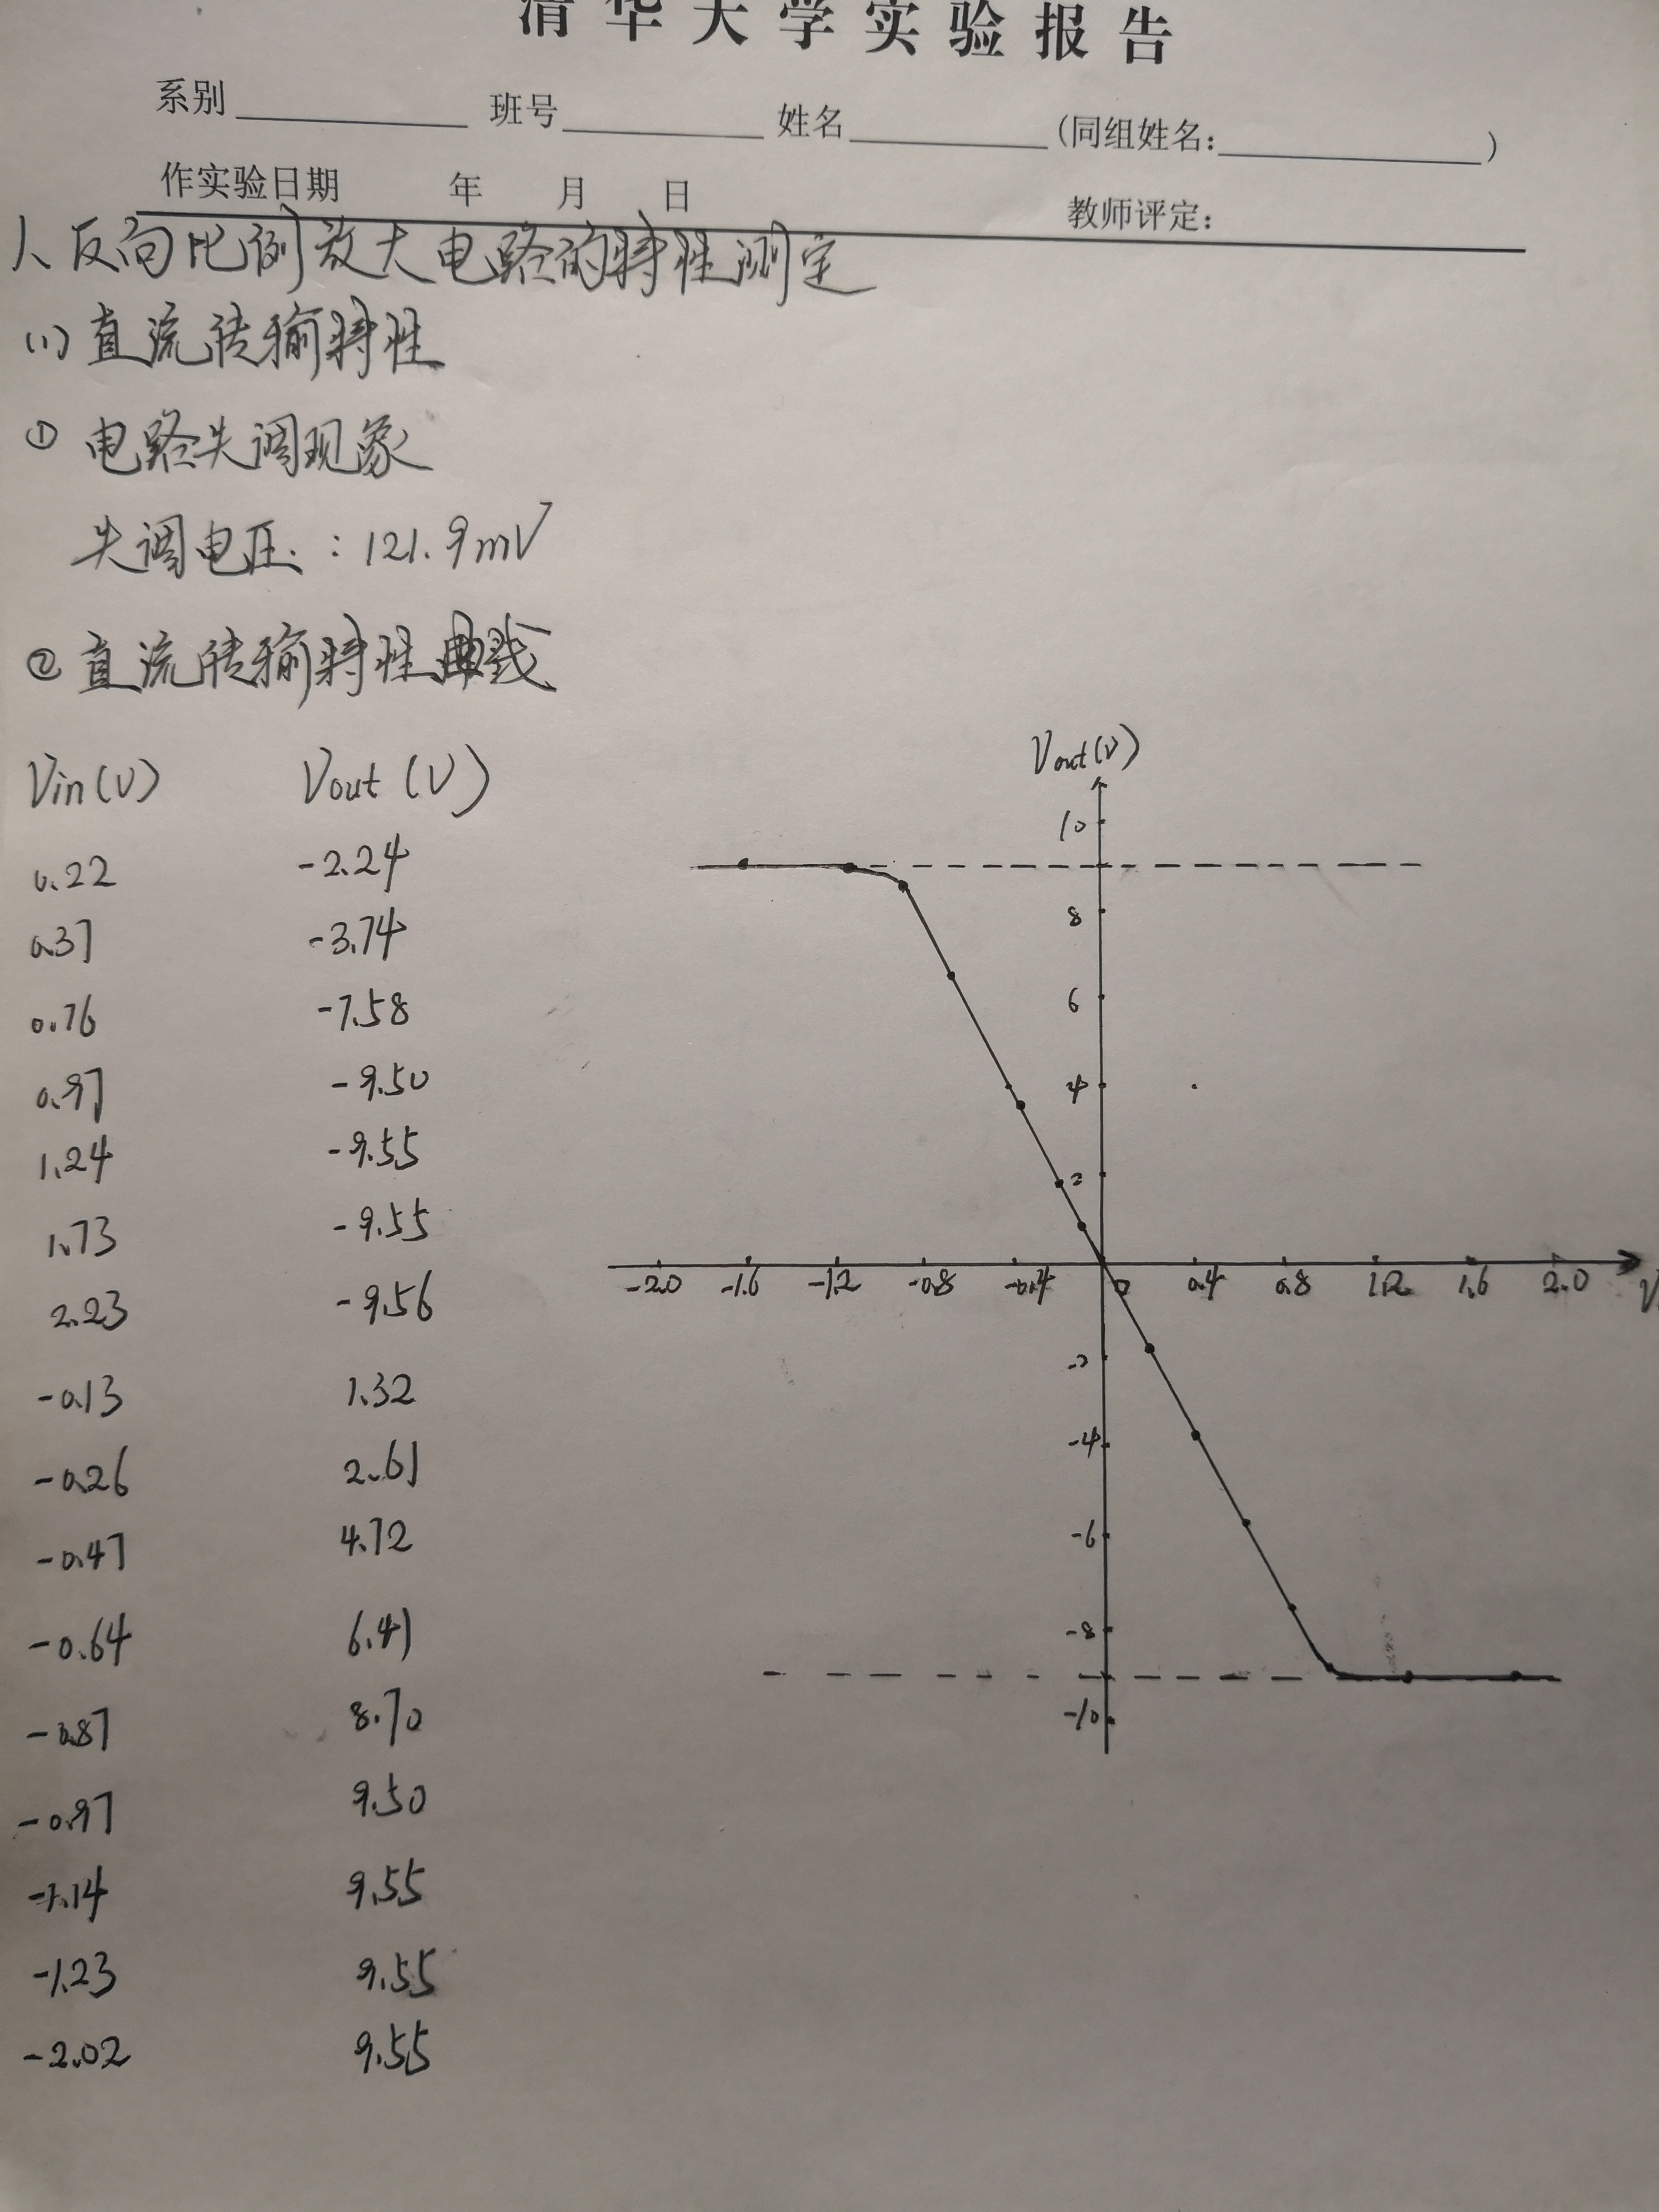 清华大学实验报告
系别 班号 姓名 (同组姓名: )
作实验日期 年 月 日
教师评定:
1、反向比例放大电路的特性测定
(1) 直流传输特性
① 电路失调现象
失调电压: 121.9mV
② 直流传输特性曲线
Vin(V) Vout(V)
0.22 -2.24
0.37 -3.74
0.76 -7.58
0.97 -9.50
1.24 -9.55
1.73 -9.55
2.23 -9.56
-0.13 1.32
-0.26 2.61
-0.47 4.72
-0.64 6.41
-0.87 8.70
-0.97 9.50
-1.14 9.55
-1.23 9.55
-2.02 9.55
Vout(V)
10
8
6
4
2
-2.0 -1.6 -1.2 -0.8 -0.4 0 0.4 0.8 1.2 1.6 2.0 V
-2
-4
-6
-8
-10